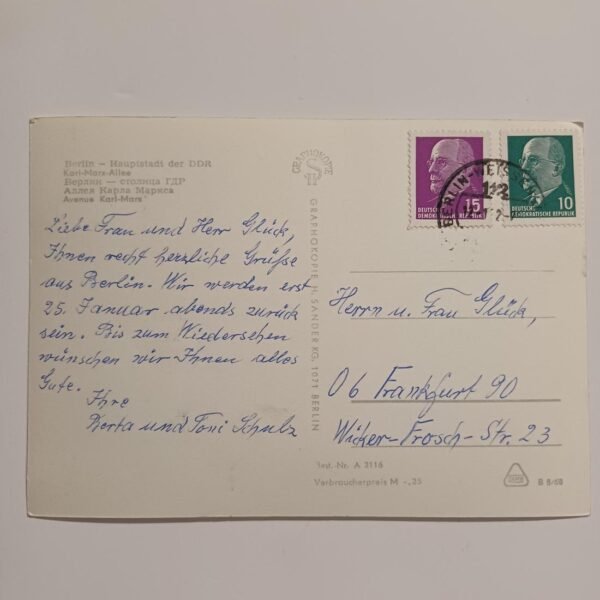 Berlin – Hauptstadt der DDR
Karl-Marx-Allee
Берлин – столица ГДР
Аллея Карла Маркса
Avenue Karl-Marx
Liebe Frau und Herr Glück,
Ihnen recht herzliche Grüße
aus Berlin. Wir werden erst
25. Januar abends zurück
sein. Bis zum Wiedersehen
wünschen wir Ihnen alles
Gute.
Ihre
Herta und Toni Schulz
GRAPHOKOPIE
GRAPHOKOPIE H. SANDER KG, 1071 BERLIN
15
DEUTSCHE
DEMOKRATISCHE REPUBLIK
10
DEUTSCHE
DEMOKRATISCHE REPUBLIK
BERLIN-WEISSENSEE
112
Herrn u. Frau Glück,
06 Frankfurt 90
Wicker-Frosch-Str. 23
Best.-Nr. A 3116
Verbraucherpreis M -,25
B 8/69